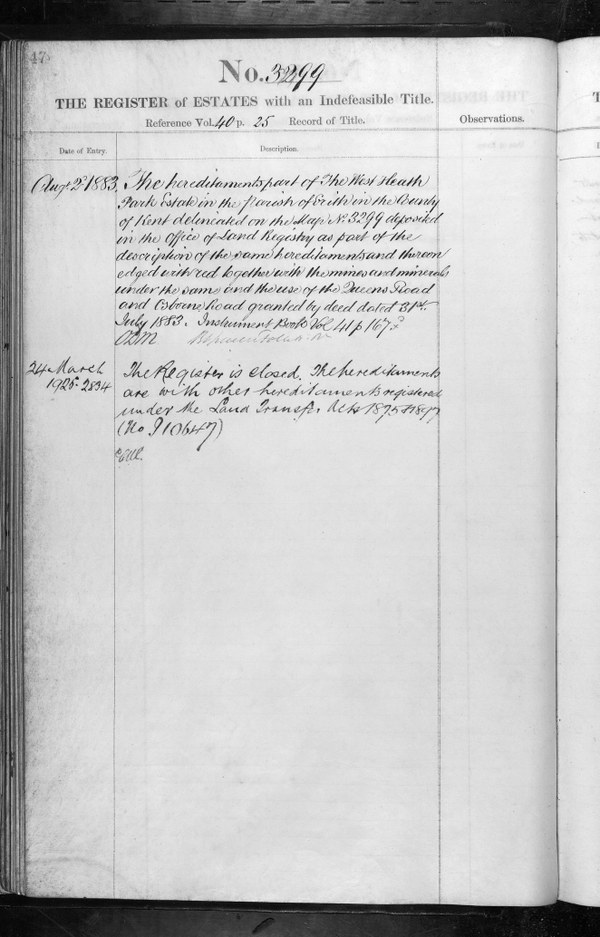 47
No. 3299
THE REGISTER of ESTATES with an Indefeasible Title.
Reference Vol. 40 p. 25 Record of Title.
Observations.
Date of Entry.
Description.
Augt 2d 1883.
The hereditaments part of The West Heath
Park Estate in the Parish of Erith in the County
of Kent delineated on the Map No 3299 deposited
in the Office of Land Registry as part of the
description of the same hereditaments and thereon
edged with red together with the mines and minerals
under the same and the use of the Queens Road
and Osborne Road granted by deed dated 31st
July 1883. Instrument Book Vol 41 p 167.
24 March
1925 2834
The Register is closed. The hereditaments
are with other hereditaments registered
under the Land Transfer Acts 1875 & 1897
(No P10647)